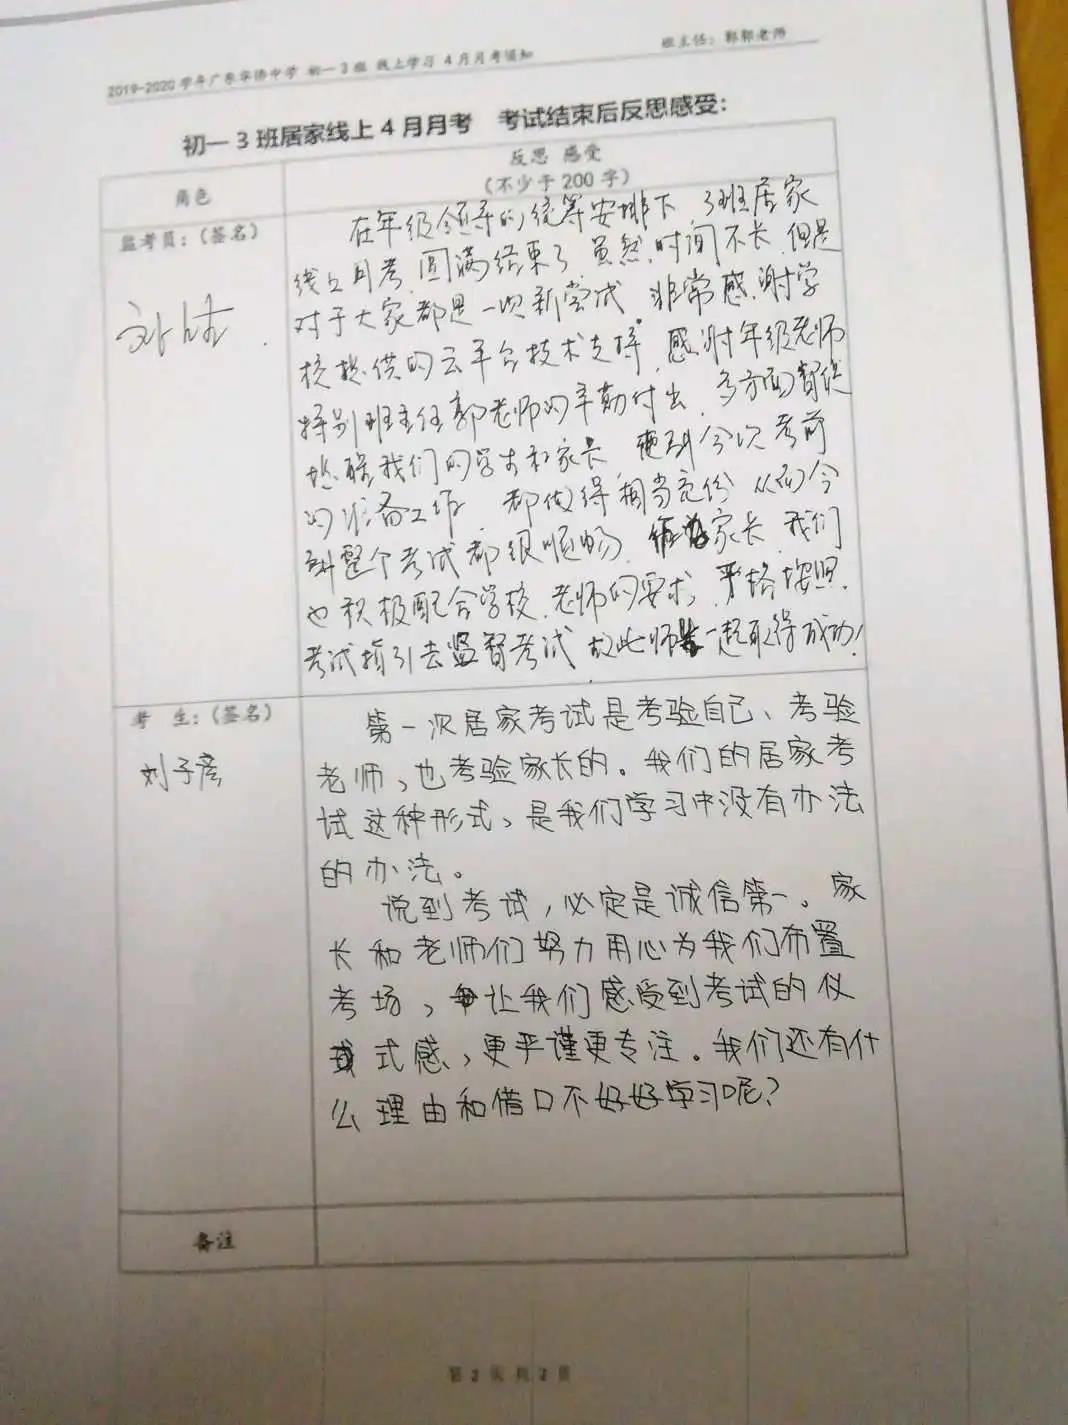 2019-2020 学年广东华侨中学 初一3班 线上学习 4月月考须知
班主任：郭郭老师
初一3班居家线上4月月考 考试结束后反思感受：
角色
反思 感受
（不少于200字）
监考员：（签名）
在年级领导的统筹安排下 3班居家
线上月考,圆满结束了,虽然时间不长,但是
对于大家都是一次新尝试.非常感谢学
校提供的云平台技术支持,感谢年级老师
特别班主任郭老师的辛勤付出,多方面督促
我们的学生和家长
的准备工作,都做得相当充份 从而令
整个考试都很顺畅 家长,我们
也积极配合学校,老师的要求,严格按照
考试指引去监督考试 故此师生一起取得成功!
考 生：（签名）
刘子彦
第一次居家考试是考验自己、考验
老师、也考验家长的。我们的居家考
试这种形式,是我们学习中没有办法
的办法。
说到考试,必定是诚信第一。家
长和老师们努力用心为我们布置
考场,让我们感受到考试的仪
式感,更严谨更专注。我们还有什
么理由和借口不好好学习呢?
备注
第 2 页 共 2 页